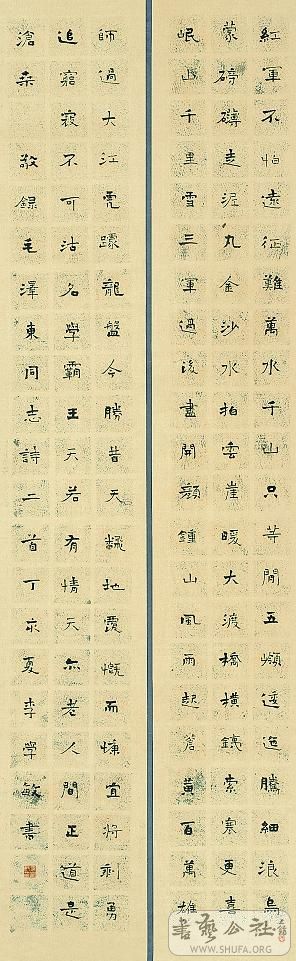 紅軍不怕遠征難萬水千山只等閒五嶺逶迤騰細浪烏
蒙磅礴走泥丸金沙水拍雲崖暖大渡橋橫鐵索寒更喜
岷山千里雪三軍過後盡開顏鍾山風雨起蒼黃百萬雄
師過大江虎踞龍盤今勝昔天翻地覆慨而慷宜將剩勇
追窮寇不可沽名學霸王天若有情天亦老人間正道是
滄桑 敬錄毛澤東同志詩二首丁亥夏李學敏書
書藝公社
WWW.SHUFA.ORG